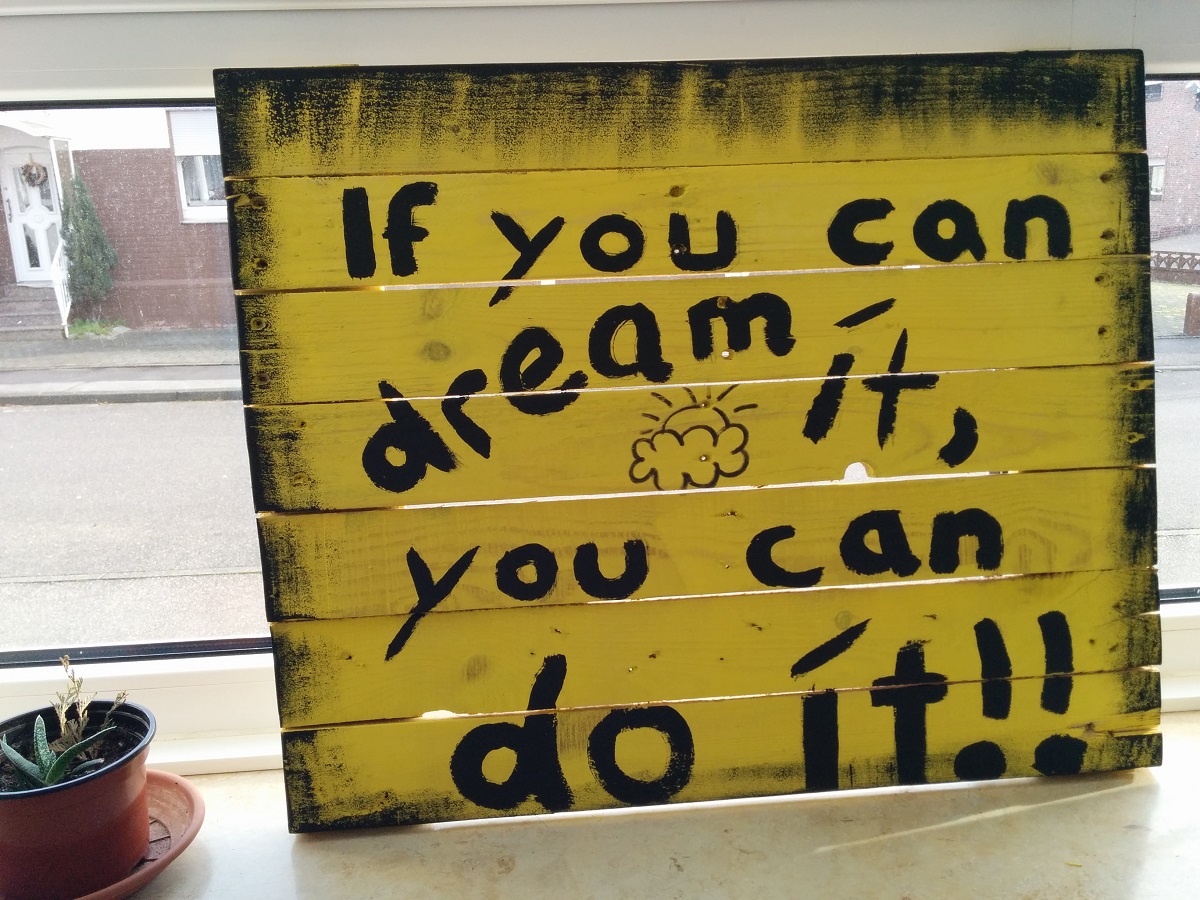 If you can
dream ít,
you can
do ít!!